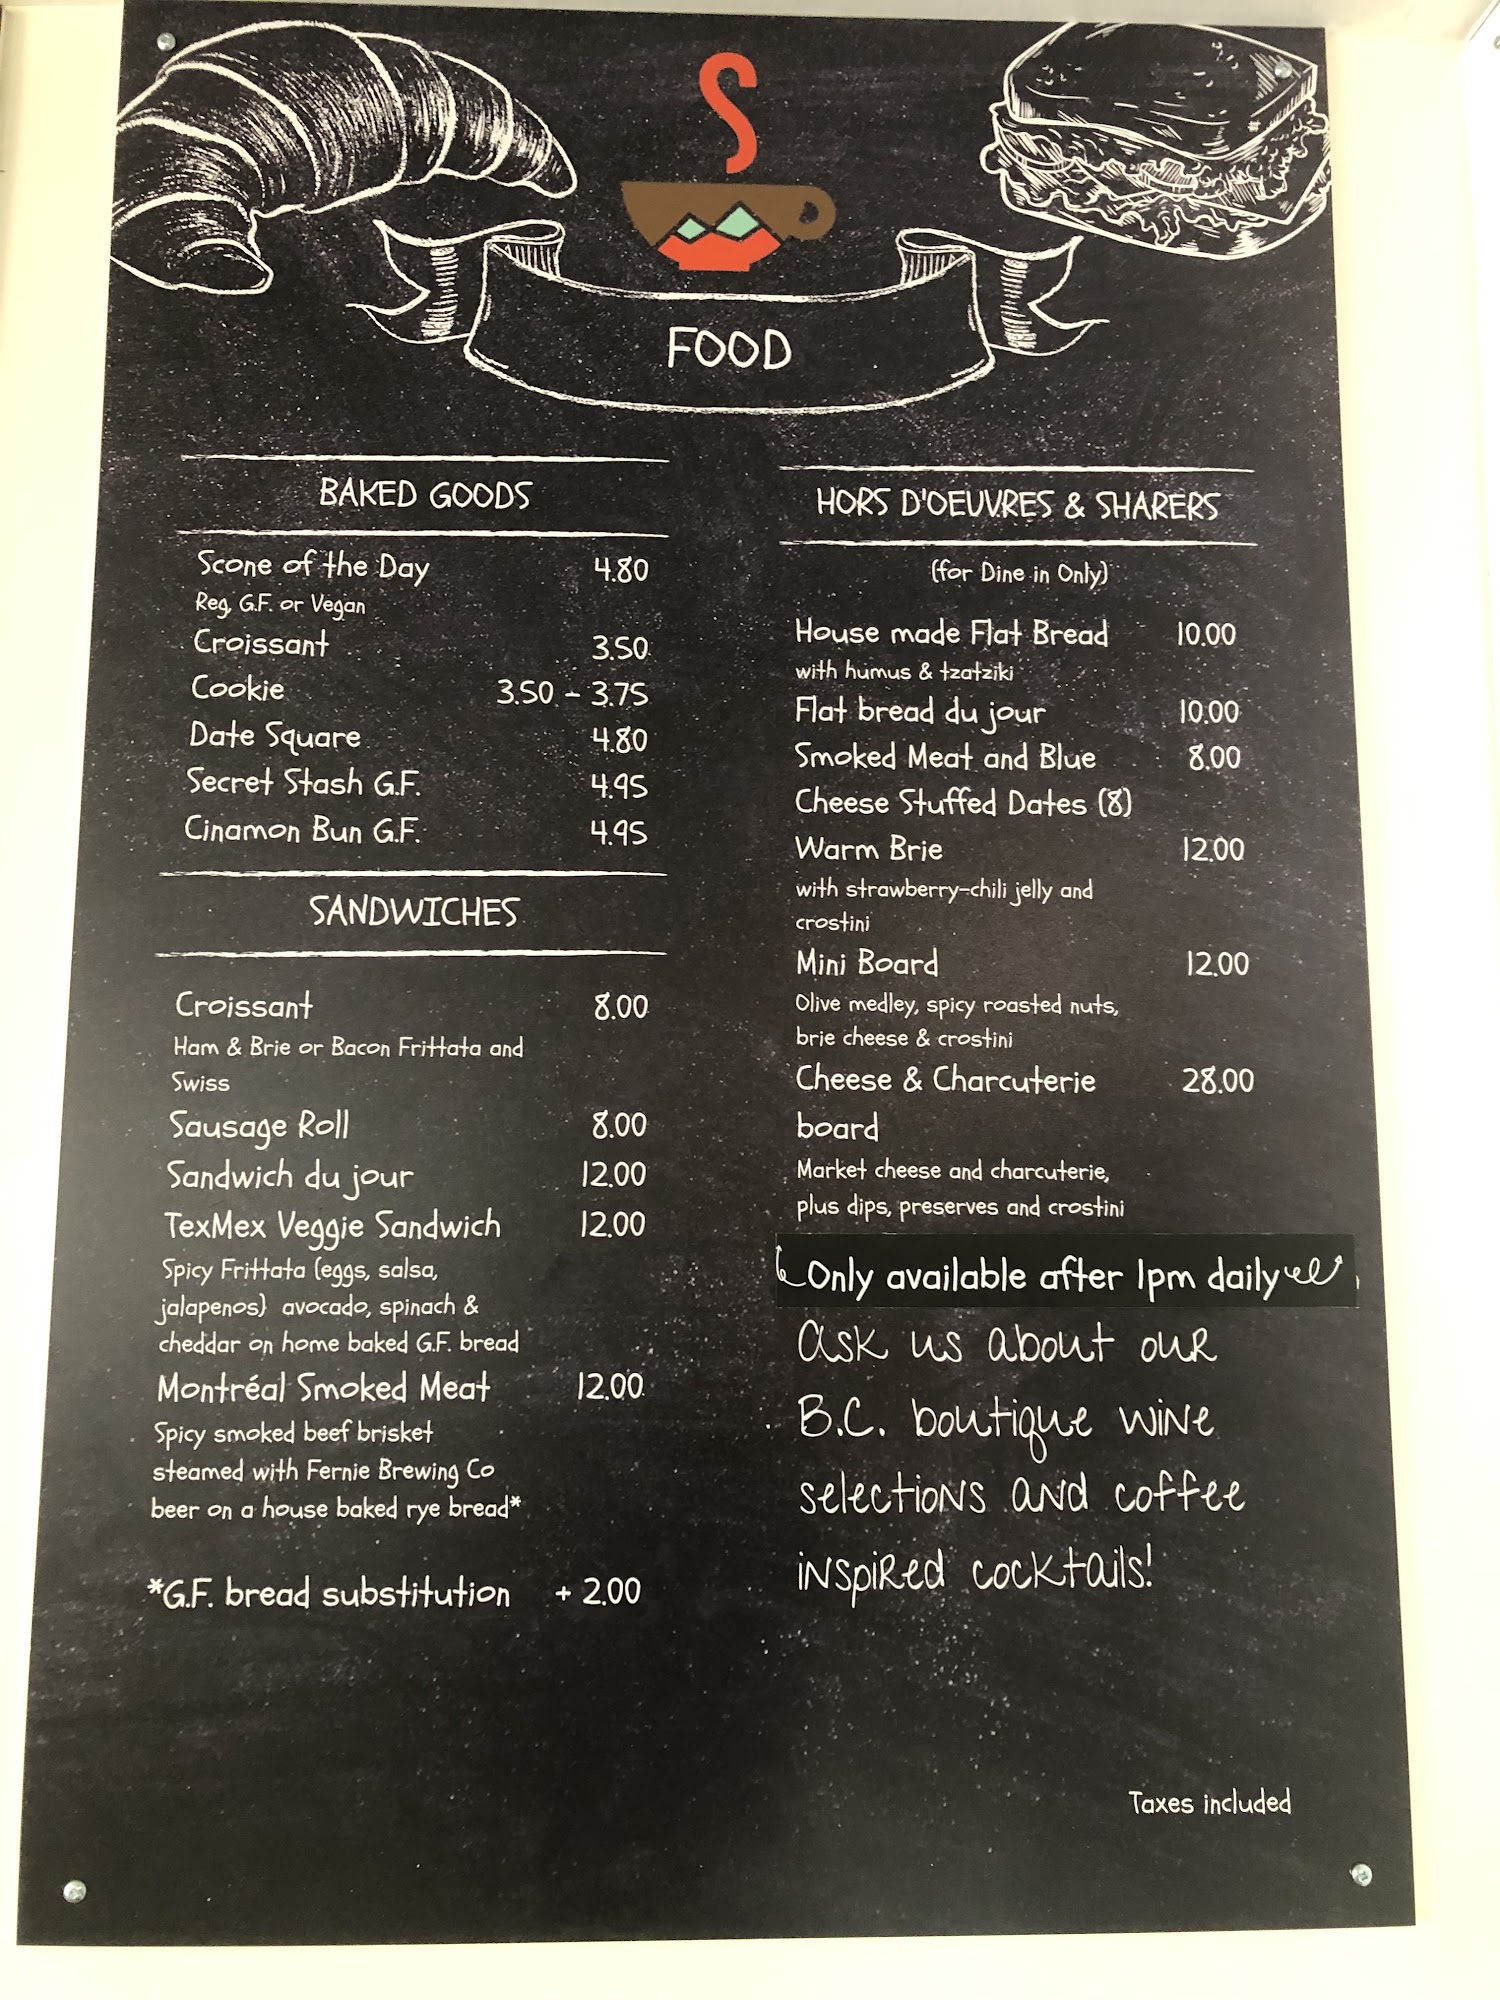 FOOD
BAKED GOODS
Scone of the Day 4.80
Reg, G.F. or Vegan
Croissant 3.50
Cookie 3.50 - 3.75
Date Square 4.80
Secret Stash G.F. 4.95
Cinamon Bun G.F. 4.95
SANDWICHES
Croissant 8.00
Ham & Brie or Bacon Frittata and
Swiss
Sausage Roll 8.00
Sandwich du jour 12.00
TexMex Veggie Sandwich 12.00
Spicy Frittata (eggs, salsa,
jalapenos) avocado, spinach &
cheddar on home baked G.F. bread
Montréal Smoked Meat 12.00
Spicy smoked beef brisket
steamed with Fernie Brewing Co
beer on a house baked rye bread*
*G.F. bread substitution + 2.00
HORS D'OEUVRES & SHARERS
(for Dine in Only)
House made Flat Bread 10.00
with humus & tzatziki
Flat bread du jour 10.00
Smoked Meat and Blue 8.00
Cheese Stuffed Dates (8)
Warm Brie 12.00
with strawberry-chili jelly and
crostini
Mini Board 12.00
Olive medley, spicy roasted nuts,
brie cheese & crostini
Cheese & Charcuterie 28.00
board
Market cheese and charcuterie,
plus dips, preserves and crostini
Only available after 1pm daily
Ask us about our
B.C. boutique wine
selections and coffee
inspired cocktails!
Taxes included